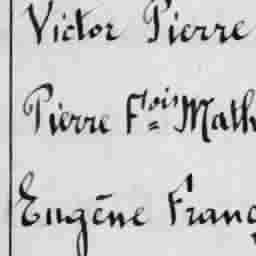 Victor Pierre
Pierre Fçois Math
Eugène Franç